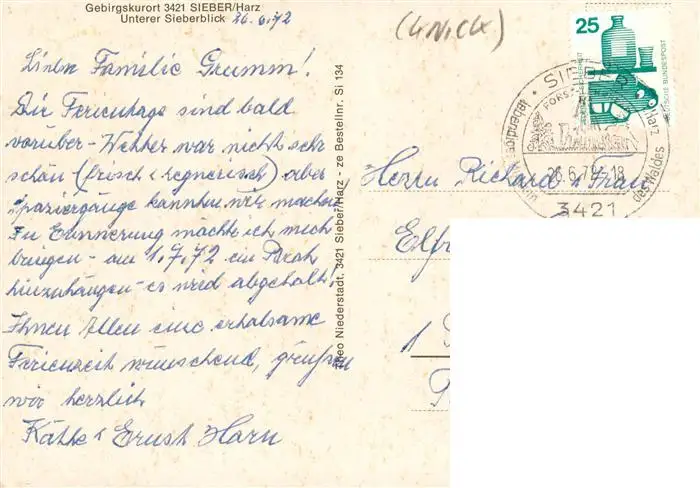 Gebirgskurort 3421 SIEBER/Harz
Unterer Sieberblick
26.6.72
Familie Grumm!
Die Ferientage sind bald
vorüber - Wetter war nicht sehr
schön (frisch & regnerisch) aber
Spaziergänge konnten wir machen
Zu Erinnerung möchte ich mich
bringen - am 1.7.72 ein
- es wird abgeholt!
Ihnen Allen eine erholsame
Ferienzeit wünschend, grüßen
wir herzlich
Käthe & Ernst Horn
Theo Niederstadt, 3421 Sieber/Harz - ze Bestellnr. Si 134
25
DEUTSCHE BUNDESPOST
SIEBER
Harz
des Waldes
26.6.72-18
3421
Herrn Richard u Frau
Elf
1